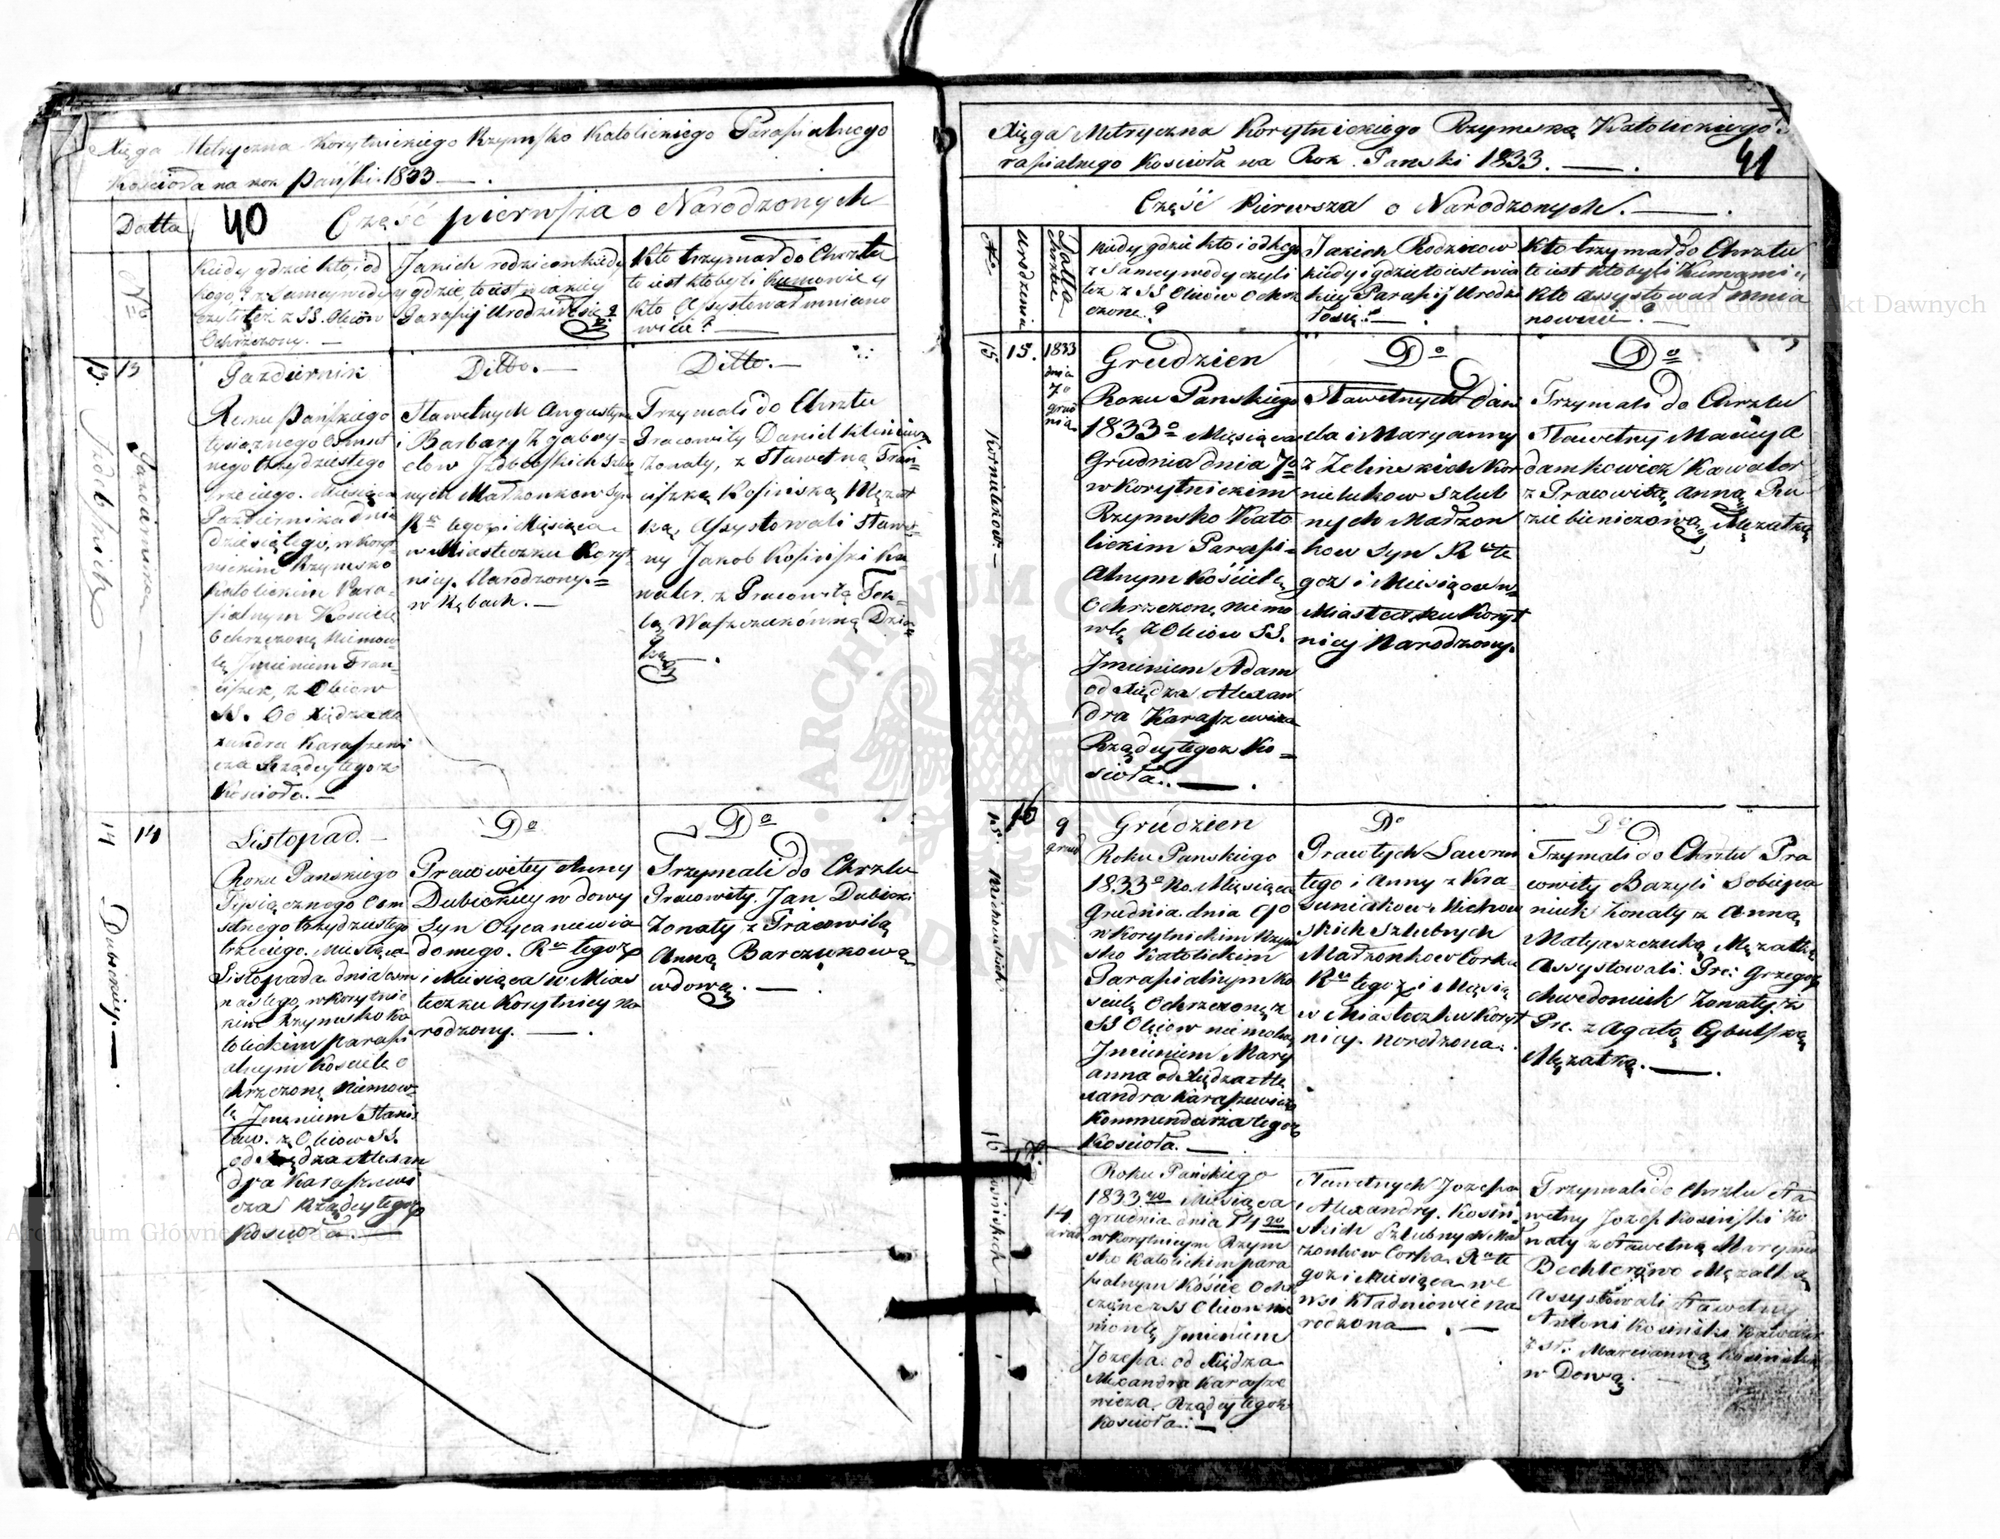 Xięga Metryczna Korytnickiego Rzymsko Katolickiego Parafialnego
Kościoła na rok pański 1833 —.
Datta
40
Część pierwsza o Narodzonych
No
Kiedy gdzie kto i od
kogo? z Samey wody
czyli też z SS. Oleiow
Ochrzczony. —
Jakich rodzicow kiedy
y gdzie, to iest w iakiey
Parafij Urodził się?
Kto trzymał do Chrztu
to iest kto byli kumowie y
kto Assystował mniano
wicie? —
13.
13
Października
Pazdziernik
Roku Pańskiego
tysiącznego osmset
nego trzydziestego
trzeciego. Miesiąca
Pazdziernika dnia
dziesiątego, w Koryt
nickim Rzymsko
Katolickim Para-
fialnym Kościele
Ochrzczone Niemow-
le Jmieniem Fran-
ciszek, z Oleiow
SS. Od Xiędza Ale
xandra Karaszewi
cza Rządcy tegoż
Kościoła. —
Ditto. —
Sławetnych Augustyna
i Barbary Z gabry-
elow Szlub
nych Małżonkow Syn
Ru tegoż i Miesiąca
w Miasteczku Koryt
nicy. Narodzony.=
w Rębach. —
Ditto. —
Trzymali do Chrztu
Pracowity Daniel
Żonaty, z Sławetną Fran-
ciszką Kosińską Mężat
ką, Assystowali Sławet
ny Jakob Kosiński Ka
waler. z Pracowitą Tek-
lą Waszczukówną Dziew-
ką —.
14
14
Dubickiy. —
Listopad. —
Roku Pańskiego
Tysiącznego Osm
setnego trzydziestego
trzeciego. Miesiąca
Listopada dnia osm
nastego, w Korytnic
kim Rzymsko Ka
tolickim parafi
alnym Kościele O
chrzczone Niemow-
le Jmieniem Stanis
ław. z Oleiow SS.
od Xiędza Alexan
dra Karaszewi
cza Rządcy tegoż
Kościoła
Do
Pracowitey Anny
Dubickiey wdowy
Syn Oyca niewia
domego. Ru tegoż
i Miesiąca w Mias
teczku Korytnicy Na
rodzony. —.
Do
Trzymali do Chrztu
Pracowity. Jan Dubicki
Żonaty z Pracowitą
Anną Barczukową
wdową. —.
Xięga Metryczna Korytnickiego Rzymsko Katolickiego Pa
rafialnego Kościoła na Rok Panski 1833. —.
41
Część Pierwsza o Narodzonych. —.
No.
Urodzenia
Datta
Chrztu
Kiedy gdzie kto i od kogo
z Samey wody czyli
też z SS Oleiow Ochrz
czone?
Jakich Rodzicow
kiedy i gdzie to iest w ia
kiey Parafij Urodzi
ło się? —.
Kto trzymał do Chrztu
to iest kto byli Kumami y
kto assystował mnia
nowicie? —.
15.
15.
1833
dnia
7o
grud
nia
Kornielukow. —
Grudzien
Roku Panskiego
1833o Miesiąca
Grudnia dnia 7o
w Korytnickim
Rzymsko Kato
lickim Parafi-
alnym Kościele
Ochrzczone niemo
wle z Oleiow SS.
Jmieniem Adam
od Xiędza Alexan
dra Karaszewicza
Rządcy tegoż Ko-
scioła. —.
Do
Sławetnych Dani
ela i Maryanny
z Zelinskich Kor
nielukow Szlub
nych Małżon
kow Syn Ru te
goż i Miesiąca w
Miasteczku Koryt
nicy Narodzony.
Do
Trzymali do Chrztu
Sławetny Maciey A
damkowicz Kawaler
z Pracowitą Anną
Mężatką
16
15.
9
grud
Grudzien
Roku Panskiego
1833o Ro. Miesiąca
Grudnia dnia 9o
w Korytnickim Rzym
sko Katolickim
Parafialnym Ko
sciele Ochrzczone z
SS Oleiow niemowle
Jmieniem Mary
anna od Xiędza Ale
xandra Karaszewicza
Kommendarza tegoż
Kościoła. —
Do
Prawtych Lawren
tego i Anny z Kra
suniakow
skich Szlubnych
Małżonkow Corka
Ru tegoż i Miesią
w Miasteczku Koryt
nicy. norodzona.
Do
Trzymali do Chrztu Pra
cowity Bazyli Sobiepa
niuk Żonaty z Anną
Matyaszczuką Mężatką
Assystowali Pr: Grzegorz
Chwedoniuk Żonaty. z
Pr. z Agatą Cybulską
Mężatką. —.
16
14
grud
Kosinskich —
Roku Pańskiego
1833go Miesiąca
grudnia dnia 14go
w Korytnicym Rzym
sko Katolickim para
fialnym Kościele Ochrz
czone z SS Oleiow nie
mowle Jmieniem
Jozefa. od Xiędza
Alexandra Karasze
wicza. Rządcy tegoż
Kościoła. —
Sławetnych Jozefa
i Alexandry. Kosiń-
skich Szlubnych Mał
żonkow Corka. Ru te
goż i Miesiąca we
wsi Kładniowie na
rodzona —. —
Trzymali do Chrztu Sła
wetny Jozef Kosiński żo
naty z Sławetną Maryann
Bechterowo Mężatką
Assystowali Sławetny
Antoni Kosiński Kawaler
z Sł: Marcianną Kosińską
w Dową. —
Archiwum Główne Akt Dawnych
Archiwum Główne Akt Dawnych